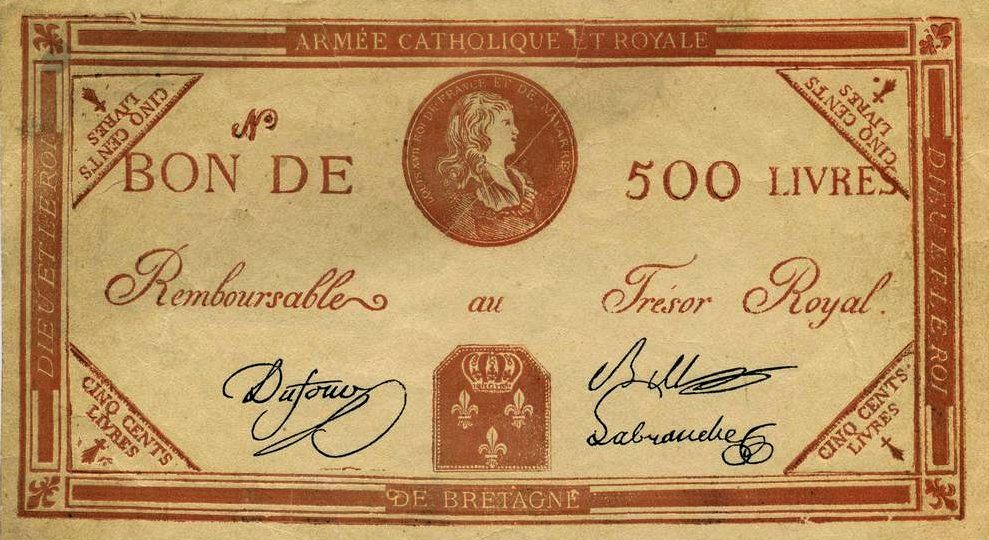 ARMÉE CATHOLIQUE ET ROYALE
CINQ CENTS
LIVRES
CINQ CENTS
LIVRES
No
LOUIS XVII ROI DE FRANCE ET DE NAVARRE
BON DE
500 LIVRES
DIEU ET LE ROI
DIEU ET LE ROI
Remboursable au Trésor Royal.
Dufour
Labranche
CINQ CENTS
LIVRES
CINQ CENTS
LIVRES
DE BRETAGNE